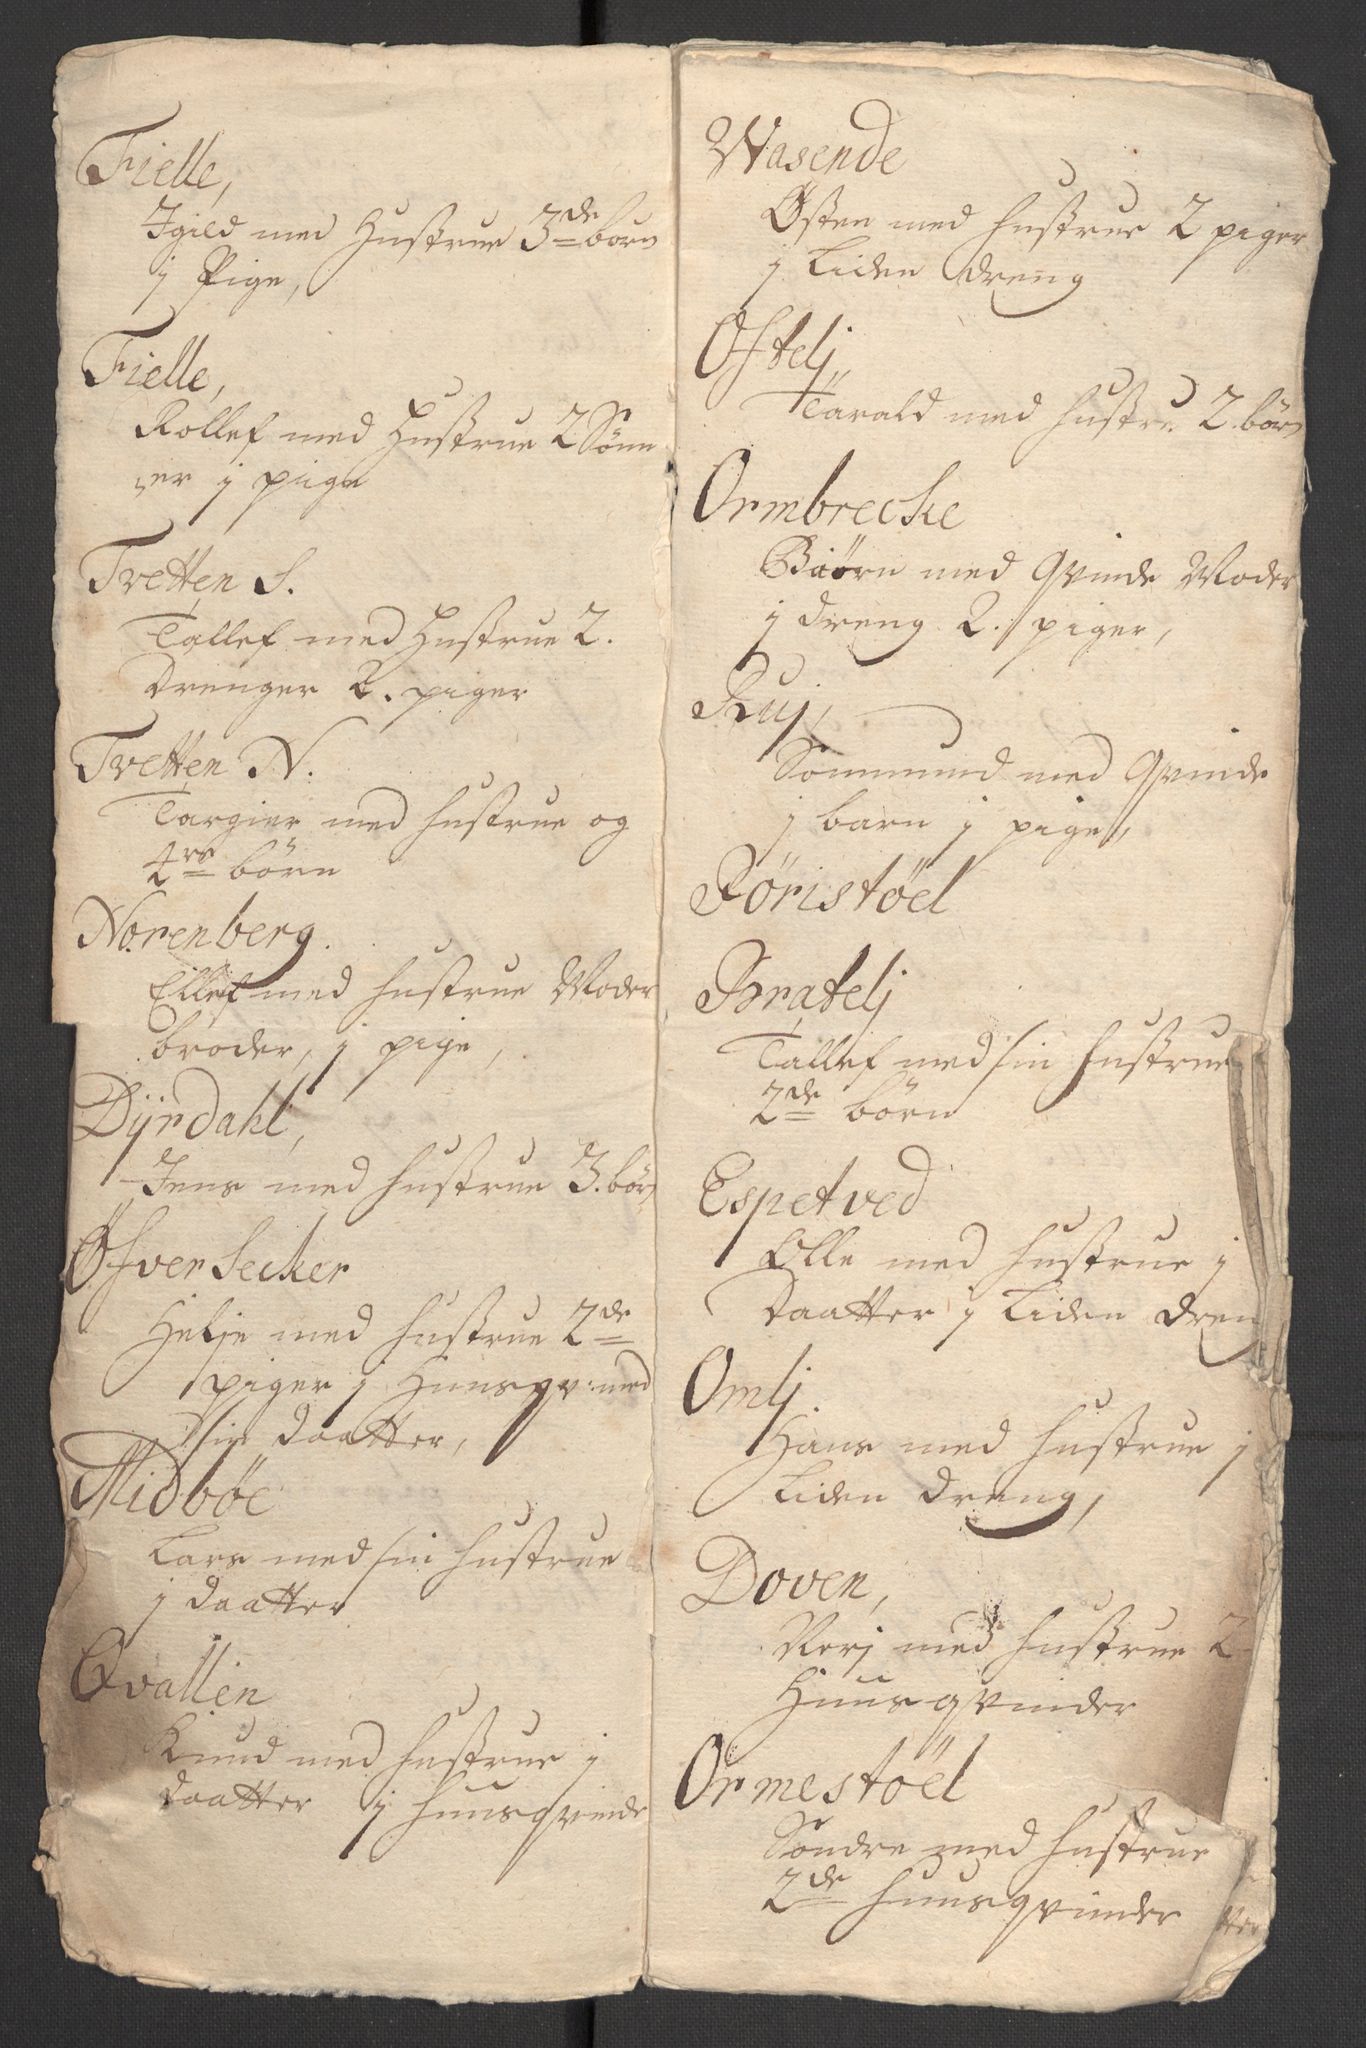 Fielle,
Igild med Hustrue 3de børn
j Pige,
Fielle,
Rollef med Hustrue 2 Sønn
er j pige
Tvetten S.
Tallef med Hustrue 2.
Drenger 2. piger
Tvetten N.
Targier med hustrue og
4re børn
Norenberg.
Ellef med hustrue Moder
broder, j pige,
Dijrdahl,
Jens med hustrue 3. børn
Øfver Secker
Helje med hustrue 2de
piger j Huusqv: med
sin daatter,
Midbøe
Lars med sin hustrue
j daatter
Qvallen
Knud med hustrue j
daatter j huusqvinde
Wasende
Østen med hustrue 2 piger
j Liden dreng
Oftelj
Tarald med hustru 2. børn
Ormbrecke
Biørn med Qvinde Moder
j dreng 2. piger,
Ruj,
Sommund med Qvinde
j barn j pige,
Røristøel
Bratelj
Tallef med sin hustrue
2de børn
Espetved
Olle med hustrue j
Daatter j Liden dren
Omlj.
Hans med hustrue j
Liden dreng,
Doven,
Nerj med hustrue 2
Huusqvinder
Ormestøel
Søndre med hustrue
2de huusqvinder